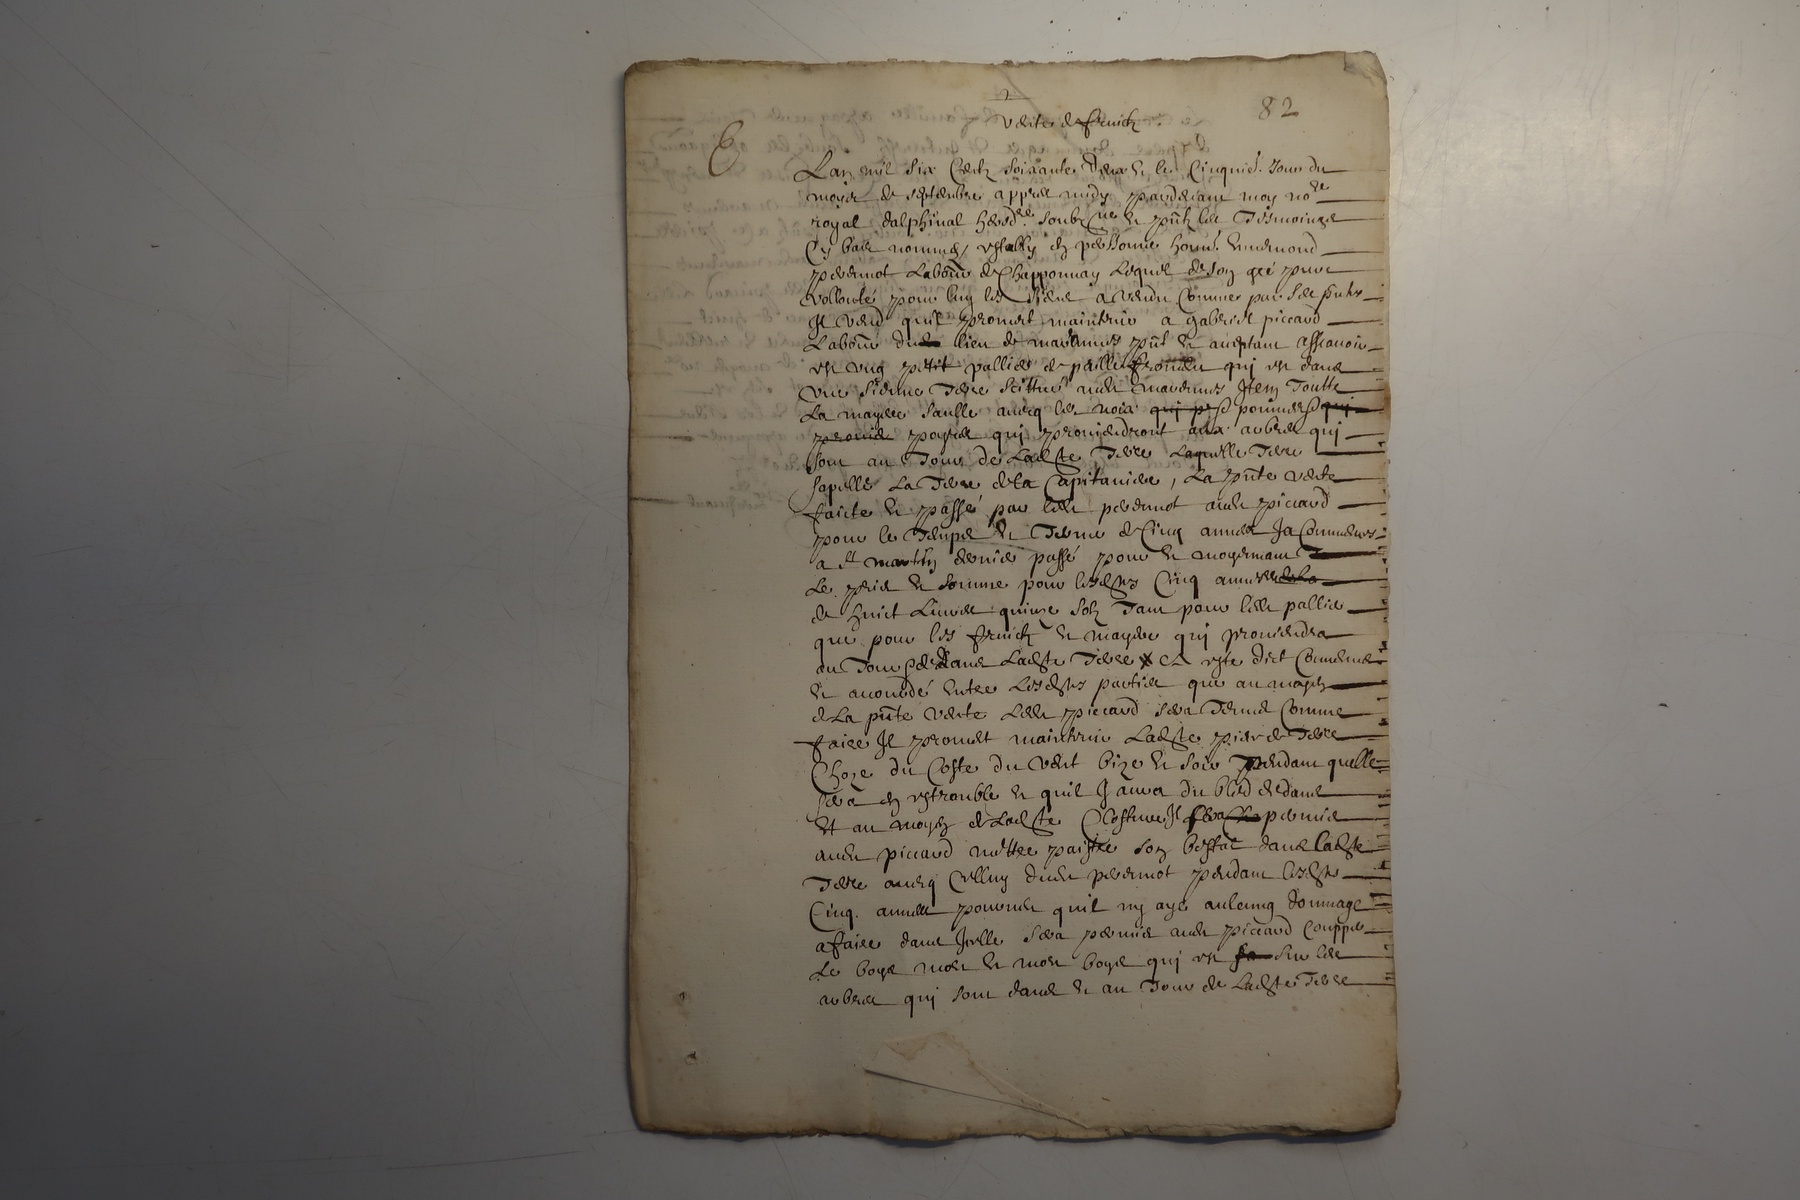 82
Vente de fruictz
E
L'an mil six centz soixante deux et le cinquies. jour du
moys de septembre appres midy pardevant moy no.re
royal dalphinal hered.re soubz.ne et p̃ntz les tesmoings
cy bas nommes, estably en personne honn.
pevernot laboũr de Chapponnay lequel de son gré pure
vollonté pour luy les siens a vendu comme par ses p̃ntes
Il vend quil promet maintenir a gabriel piccard
laboũr du lieu de marennes p̃nt et aceptant assavoir
est ung petit pallier de paille qui est dans
une sienne terre scittué aud marennes Item toutte
la mayere saulle avecq les noix qui pommes qui
provien poyres qui proviendront aux arbres qui
sont au tour de ladte terre laquelle terre
sapelle la terre de la Capitaniere, la p̃nte vente
faicte et passé par led pevernot aud piccard
pour le temps et terme de cinq annees ja commences
a st martin dernier passé pour et moyenant
le prix et somme pour lesdtes cinq annees
de huict livres quinze solz tant pour led pallier
que pour les fruictz et mayere qui proviendra
au tour dans ladte terre este dict convenu
et accordé entre lesdtes parties que au moyen
de la p̃nte vente led piccard sera tenu comme
faire Il promet maintenir ladte piece de terre
Choze du costé du vent bize et soir pendant quelle
sera en estrouble et quil y aura du bled dedans
Et au moyen de ladte closture Il sera permis
aud piccard mettre paistre son bestal dans ladte
terre avecq celluy dud pevernot pendant lesdtes
Cinq annees pourveu quil ny aye aulcung dommage
a faire dans Icelle sera permis aud piccard coupper
le boys mort et mort boys qui est sur les
arbres qui sont dans et au tour de ladte terre